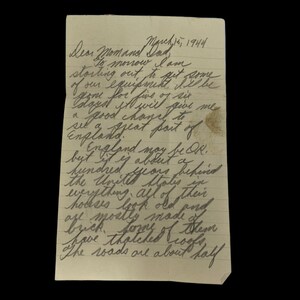 March 15, 1944
Dear Mom and Dad,
To morrow I am
starting out to get some
of our equipment. I'll be
gone for five or six
days. It will give me
a good chance to
see a great part of
England.
England may be O.K.
but it is about a
hundred years behind
the United States in
everything. All of their
houses look old and
are mostly made of
brick. Some of them
have thatched roofs.
The roads are about half